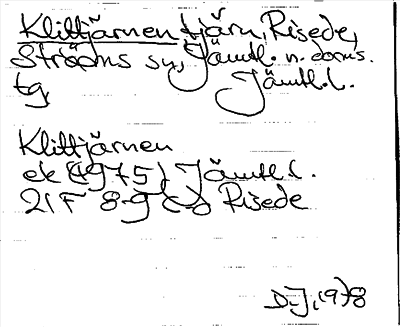 Klittjärnen tjärn, Risede,
Ströms sn, Jämtl. n. doms.
tg, Jämtl.l.
Klittjärnen
ek (1975) Jämtl.l.
21F 8-9 c-d Risede
D-J, 1978